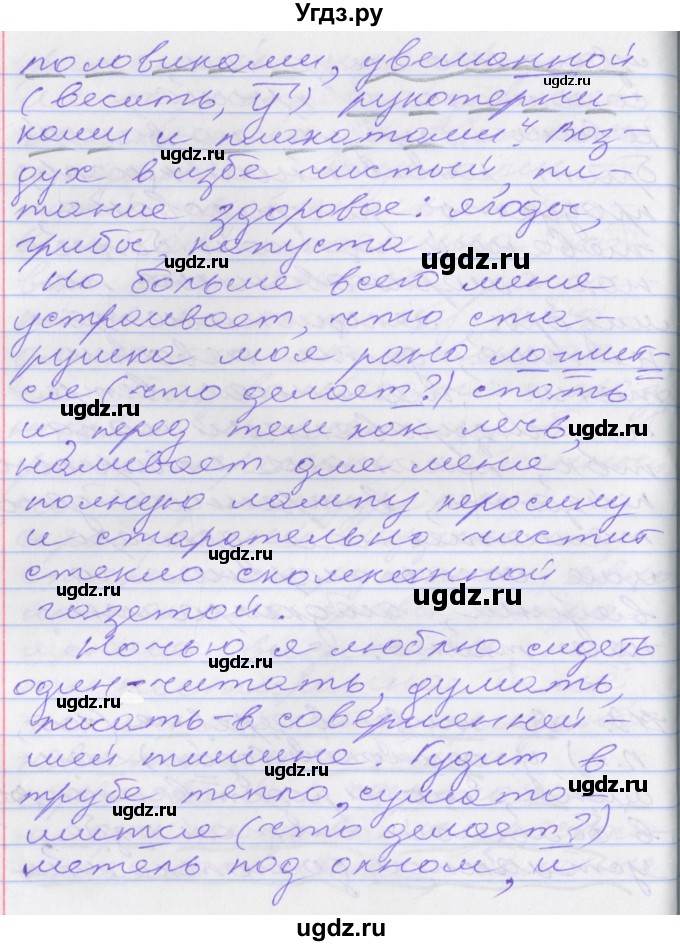 Угдз.ру
половиками, увешанной
ugdz.ru
(весить, у¹) рукотерни-
ugdz.ru
ками и плакатами.⁴ Воз-
ugdz.ru
дух в избе чистый, пи-
тание здоровое: ягоды,
грибы, капуста
ugdz.ru
ugdz.ru
Но больше всего меня
устраивает, что ста-
рушка моя рано ложит-
ugdz.ru
ся (что делает?) спать
ugdz.ru
и, перед тем как лечь,
наливает для меня
полную лампу керосину
и старательно чистит
ugdz.ru
стекло скомканной
ugdz.ru
газетой.
Ночью я люблю сидеть
ugdz.ru
один-читать, думать,
писать-в совершенней-
шей тишине. Гудит в
ugdz.ru
ugdz.ru
трубе тепло, сумато-
ugdz.ru
шится (что делает?)
метель под окном, и
ugdz.ru